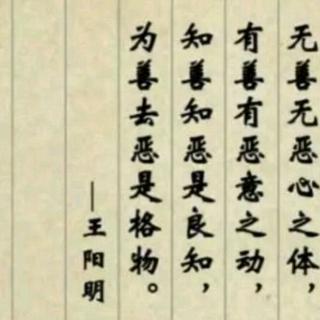 无善无恶心之体，
有善有恶意之动，
知善知恶是良知，
为善去恶是格物。
—王阳明